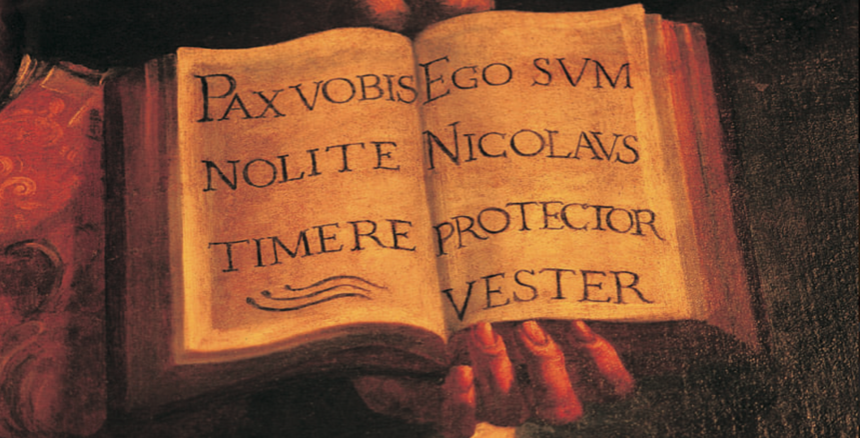 PAX VOBIS
NOLITE
TIMERE
EGO SVM
NICOLAVS
PROTECTOR
VESTER